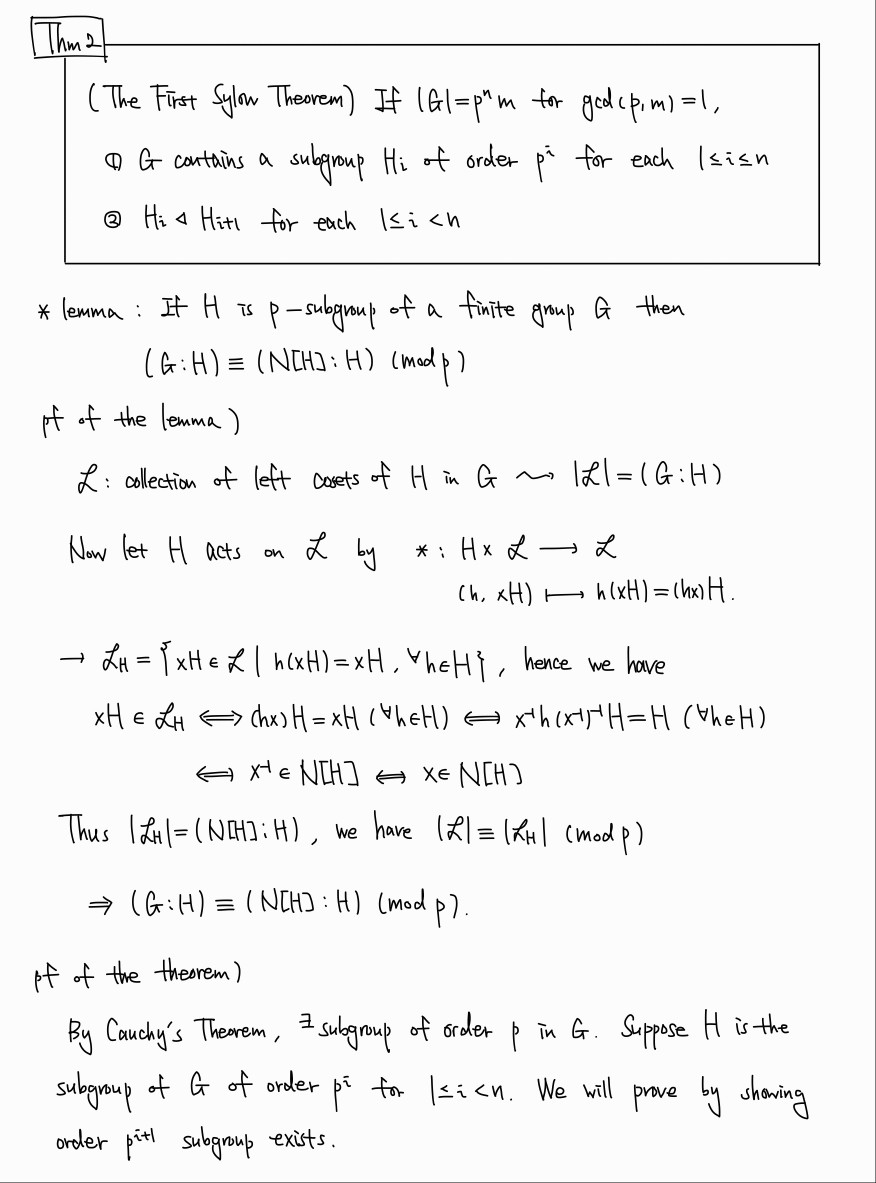 Thm 2
(The First Sylow Theorem) If |G|=pⁿm for gcd(p,m)=1,
① G contains a subgroup Hᵢ of order pⁱ for each 1≤i≤n
② Hᵢ ◁ Hᵢ₊₁ for each 1≤i<n
* lemma : If H is p-subgroup of a finite group G then
(G:H) ≡ (N[H]:H) (mod p)
pf of the lemma)
ℒ : collection of left cosets of H in G ⇝ |ℒ|=(G:H)
Now let H acts on ℒ by * : H× ℒ ⟶ ℒ
(h, xH) ⟼ h(xH)=(hx)H.
→ ℒ_H = {xH ∈ ℒ | h(xH)=xH, ∀h∈H}, hence we have
xH ∈ ℒ_H ⟺ (hx)H=xH (∀h∈H) ⟺ x⁻¹h(x⁻¹)⁻¹H=H (∀h∈H)
⟺ x⁻¹ ∈ N[H] ⟺ x∈ N[H]
Thus |ℒ_H|=(N[H]:H), we have |ℒ|≡|ℒ_H| (mod p)
⇒ (G:H) ≡ (N[H]:H) (mod p).
pf of the theorem)
By Cauchy's Theorem, ∃ subgroup of order p in G. Suppose H is the
subgroup of G of order pⁱ for 1≤i<n. We will prove by showing
order pⁱ⁺¹ subgroup exists.